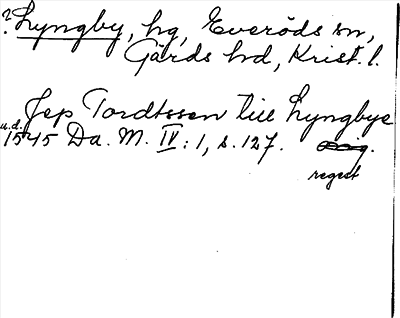 ? Lyngby, hg, Everöds sn,
Gärds hd, Krist. l.
Jep Tordtssen till Lyngbye
u.d.
1545 Da. M. IV: 1, s. 127.
regest